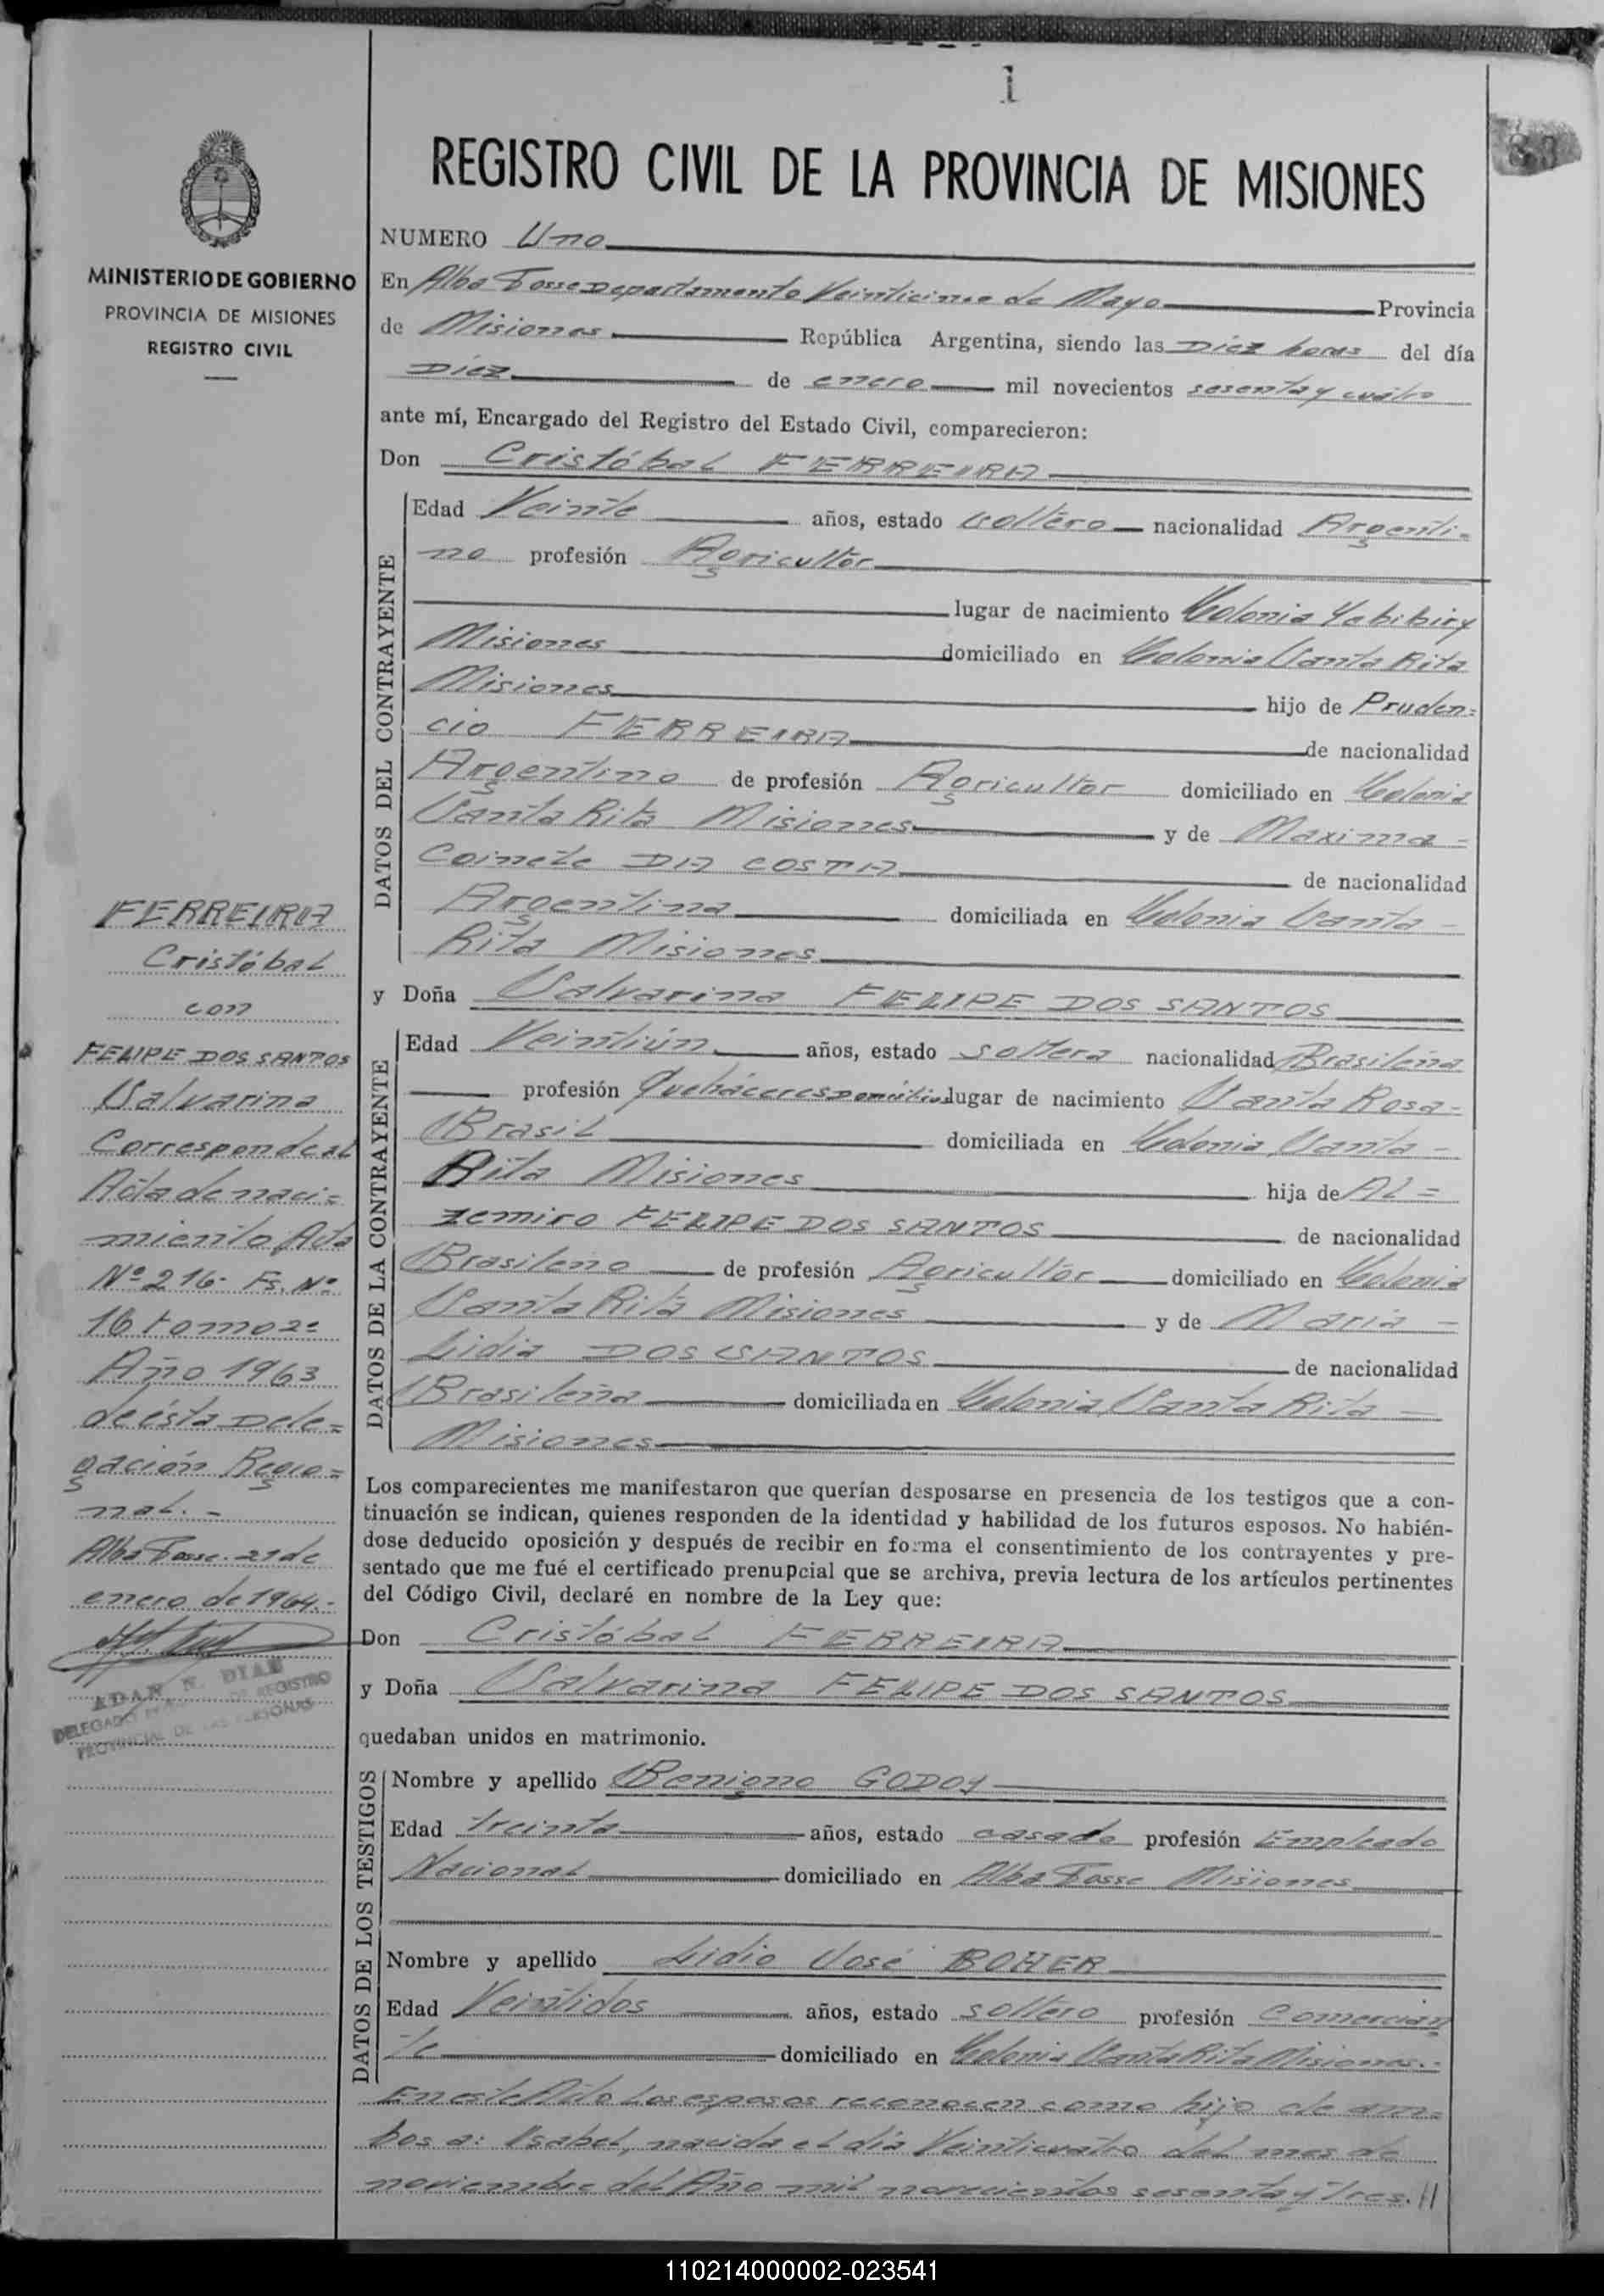 1
83
REGISTRO CIVIL DE LA PROVINCIA DE MISIONES
MINISTERIO DE GOBIERNO
PROVINCIA DE MISIONES
REGISTRO CIVIL
NUMERO Uno
En Alba Posse Departamento Veinticinco de Mayo Provincia
de Misiones República Argentina, siendo las Diez horas del día
Diez de enero mil novecientos sesenta y cuatro
ante mí, Encargado del Registro del Estado Civil, comparecieron:
Don Cristóbal FERREIRA
DATOS DEL CONTRAYENTE
Edad Veinte años, estado soltero nacionalidad Argenti-
no profesión Agricultor
lugar de nacimiento Colonia Yabibiry
Misiones domiciliado en Colonia Santa Rita
Misiones hijo de Pruden=
cio FERREIRA de nacionalidad
Argentino de profesión Agricultor domiciliado en Colonia
Santa Rita Misiones y de Maxima -
DA COSTA de nacionalidad
Argentina domiciliada en Colonia Santa -
Rita Misiones
y Doña Salvarina FELIPE DOS SANTOS
DATOS DE LA CONTRAYENTE
Edad Veintiún años, estado soltera nacionalidad Brasileña
profesión Quehaceres Domésticos lugar de nacimiento Santa Rosa-
Brasil domiciliada en Colonia Santa -
Rita Misiones hija de AL =
zemiro FELIPE DOS SANTOS de nacionalidad
Brasileno de profesión Agricultor domiciliado en Colonia
Santa Rita Misiones y de María -
Lidia DOS SANTOS de nacionalidad
Brasileña domiciliada en Colonia Santa Rita -
Misiones
Los comparecientes me manifestaron que querían desposarse en presencia de los testigos que a con-
tinuación se indican, quienes responden de la identidad y habilidad de los futuros esposos. No habién-
dose deducido oposición y después de recibir en forma el consentimiento de los contrayentes y pre-
sentado que me fué el certificado prenupcial que se archiva, previa lectura de los artículos pertinentes
del Código Civil, declaré en nombre de la Ley que:
Don Cristóbal FERREIRA
y Doña Salvarina FELIPE DOS SANTOS
quedaban unidos en matrimonio.
DATOS DE LOS TESTIGOS
Nombre y apellido Benigno GODOY
Edad treinta años, estado casado profesión Empleado
Nacional domiciliado en Alba Posse Misiones
Nombre y apellido Lidio José BOHER
Edad Veintidos años, estado soltero profesión Comercian
te domiciliado en Colonia Santa Rita Misiones.-
En este Acto Los esposos reconocen como hijo de am=
bos a: Isabel, nacida el día Veinticuatro del mes de
noviembre del Año mil novecientos sesenta y tres. //
FERREIRA
Cristóbal
con
FELIPE DOS SANTOS
Salvarina
Corresponde al
Acta de naci=
miento Acta
Nº 216- Fs. Nº
16 tomo 2º
Año 1963
de ésta Dele=
gación Regio=
nal. -
Alba Posse. 21 de
enero de 1964.-
ADAN R. DIAZ
DELEGADO DE REGISTRO
PROVINCIAL DE LAS PERSONAS
110214000002-023541